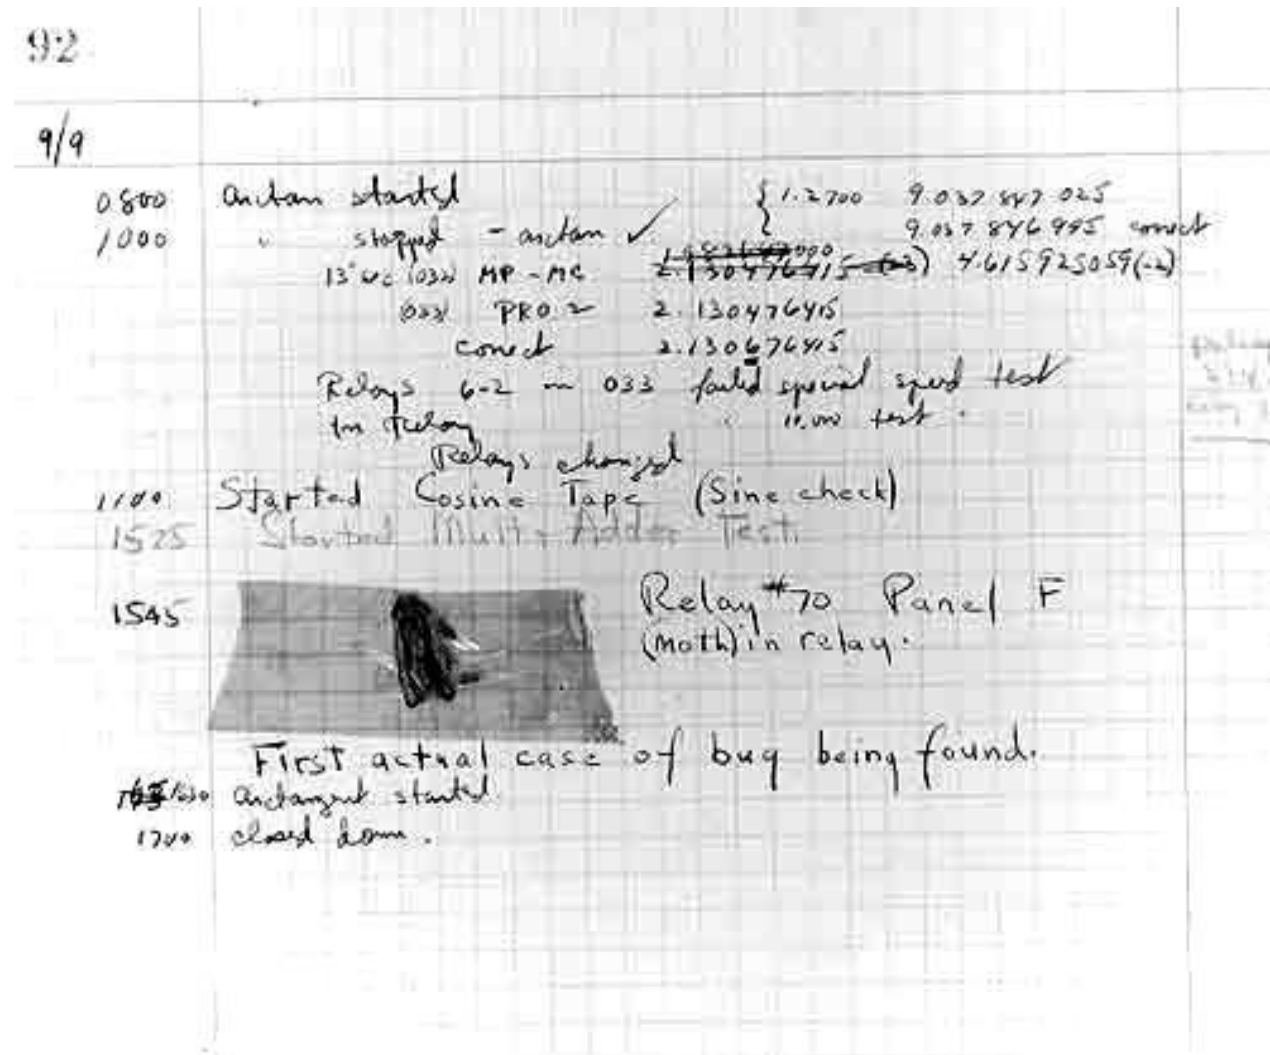 92
9/9
0800 antan started { 1.2700 9.037 847 025
1000 " stopped - antan ✓ 9.037 846 995 correct
13" uc (032) MP - MC 2.130476415 (-3) 4.615925059(-2)
(033) PRO 2 2.130476415
correct 2.130676415
Relays 6-2 in 033 failed special speed test
In Relay " 11.000 test.
Relays changed
1100 Started Cosine Tape (Sine check)
1525 Started Mult+Adder Test.
1545 Relay #70 Panel F
(Moth) in relay.
First actual case of bug being found.
1630 antangent started.
1700 closed down.